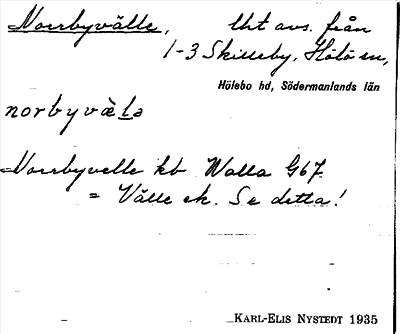 Norrbyvälle, lht avs. från
1-3 Skilleby, Hölö sn,
Hölebo hd, Södermanlands län
norbyvὲla
Norrbyvelle kb Walla G67
= Välle ek. Se detta!
KARL-ELIS NYSTEDT 1935